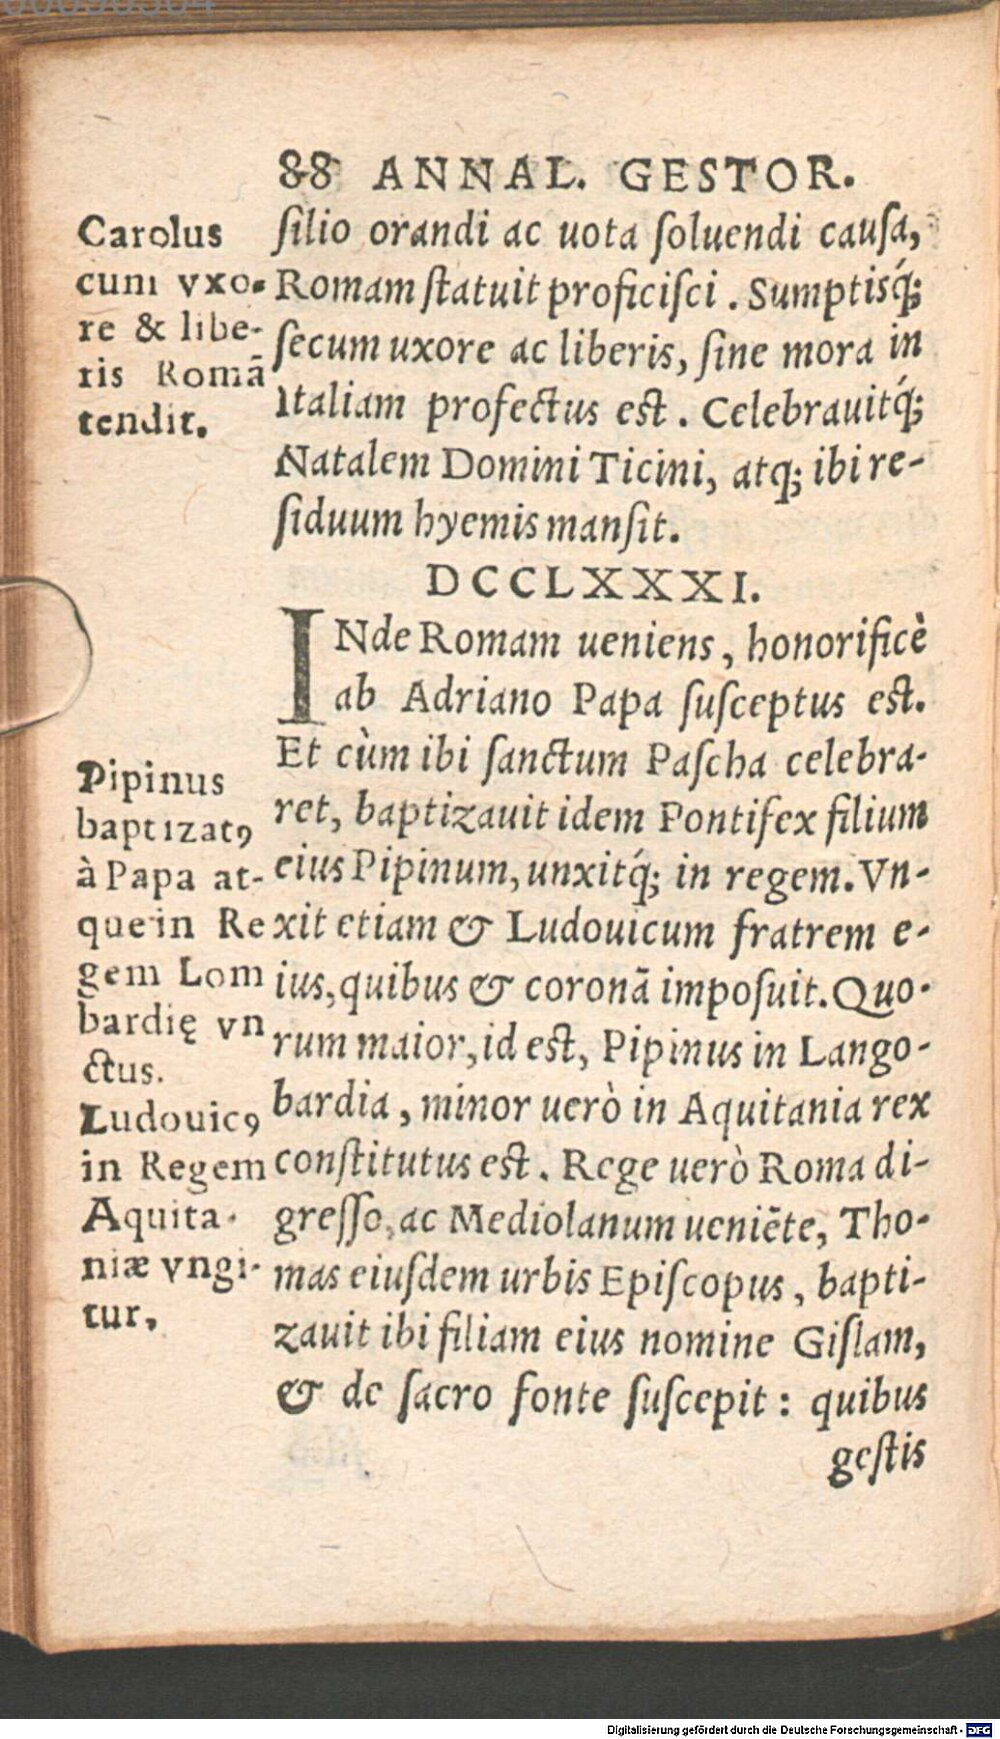 88 ANNAL. GESTOR.
Carolus
cum vxo-
re & libe-
ris Romã
tendit.
ſilio orandi ac uota ſoluendi cauſa,
Romam ſtatuit proficiſci. Sumptisq́;
ſecum uxore ac liberis, ſine mora in
Italiam profectus eſt. Celebrauitq́;
Natalem Domini Ticini, atq; ibi re-
ſiduum hyemis manſit.
DCCLXXXI.
INde Romam ueniens, honorificè
ab Adriano Papa ſuſceptus eſt.
Et cùm ibi ſanctum Paſcha celebra-
ret, baptizauit idem Pontifex filium
eius Pipinum, unxitq́; in regem. Vn-
xit etiam & Ludouicum fratrem e-
ius, quibus & coronã impoſuit. Quo-
rum maior, id eſt, Pipinus in Lango-
bardia, minor uerò in Aquitania rex
conſtitutus eſt. Rege uerò Roma di-
greſſo, ac Mediolanum ueniẽte, Tho-
mas eiuſdem urbis Epiſcopus, bapti-
zauit ibi filiam eius nomine Giſlam,
& de ſacro fonte ſuſcepit: quibus
geſtis
Pipinus
baptizatꝰ
à Papa at-
que in Re
gem Lom
bardię vn
ctus.
Ludouicꝰ
in Regem
Aquita-
niæ vngi-
tur.
Digitalisierung gefördert durch die Deutsche Forschungsgemeinschaft - DFG